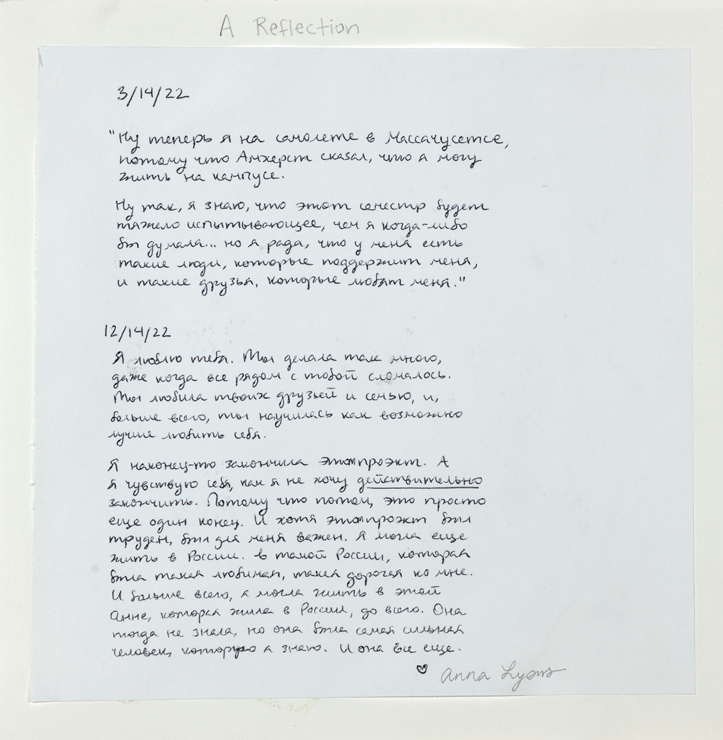 A Reflection
3/14/22
"Ну теперь я на самолете в Массачусетсе,
потому что Амхерст сказал, что я могу
жить на кампусе.
Ну так, я знаю, что этот семестр будет
тяжело испытывающее, чем я когда-либо
бы думала... но я рада, что у меня есть
такие люди, которые поддержит меня,
и такие друзья, которые любят меня."
12/14/22
Я люблю тебя. Ты делала так много,
даже когда все рядом с тобой сломалось.
Ты любила твоих друзьей и семью, и,
больше всего, ты научилась как возможно
лучше любить себя.
Я наконец-то закончила этот проэкт. А
я чувствую себя, как я не хочу действительно
закончить. Потому что потом, это просто
еще один конец. И хотя этот проэкт был
труден, был для меня важен. Я могла еще
жить в России. в такой России, которая
была такая любимая, такая дорогая ко мне.
И больше всего, я могла жить в этой
Анне, которая жила в России, до всего. Она
тогда не знала, но она была самая сильная
человек, которую я знаю. И она все еще.
Anna Lyons